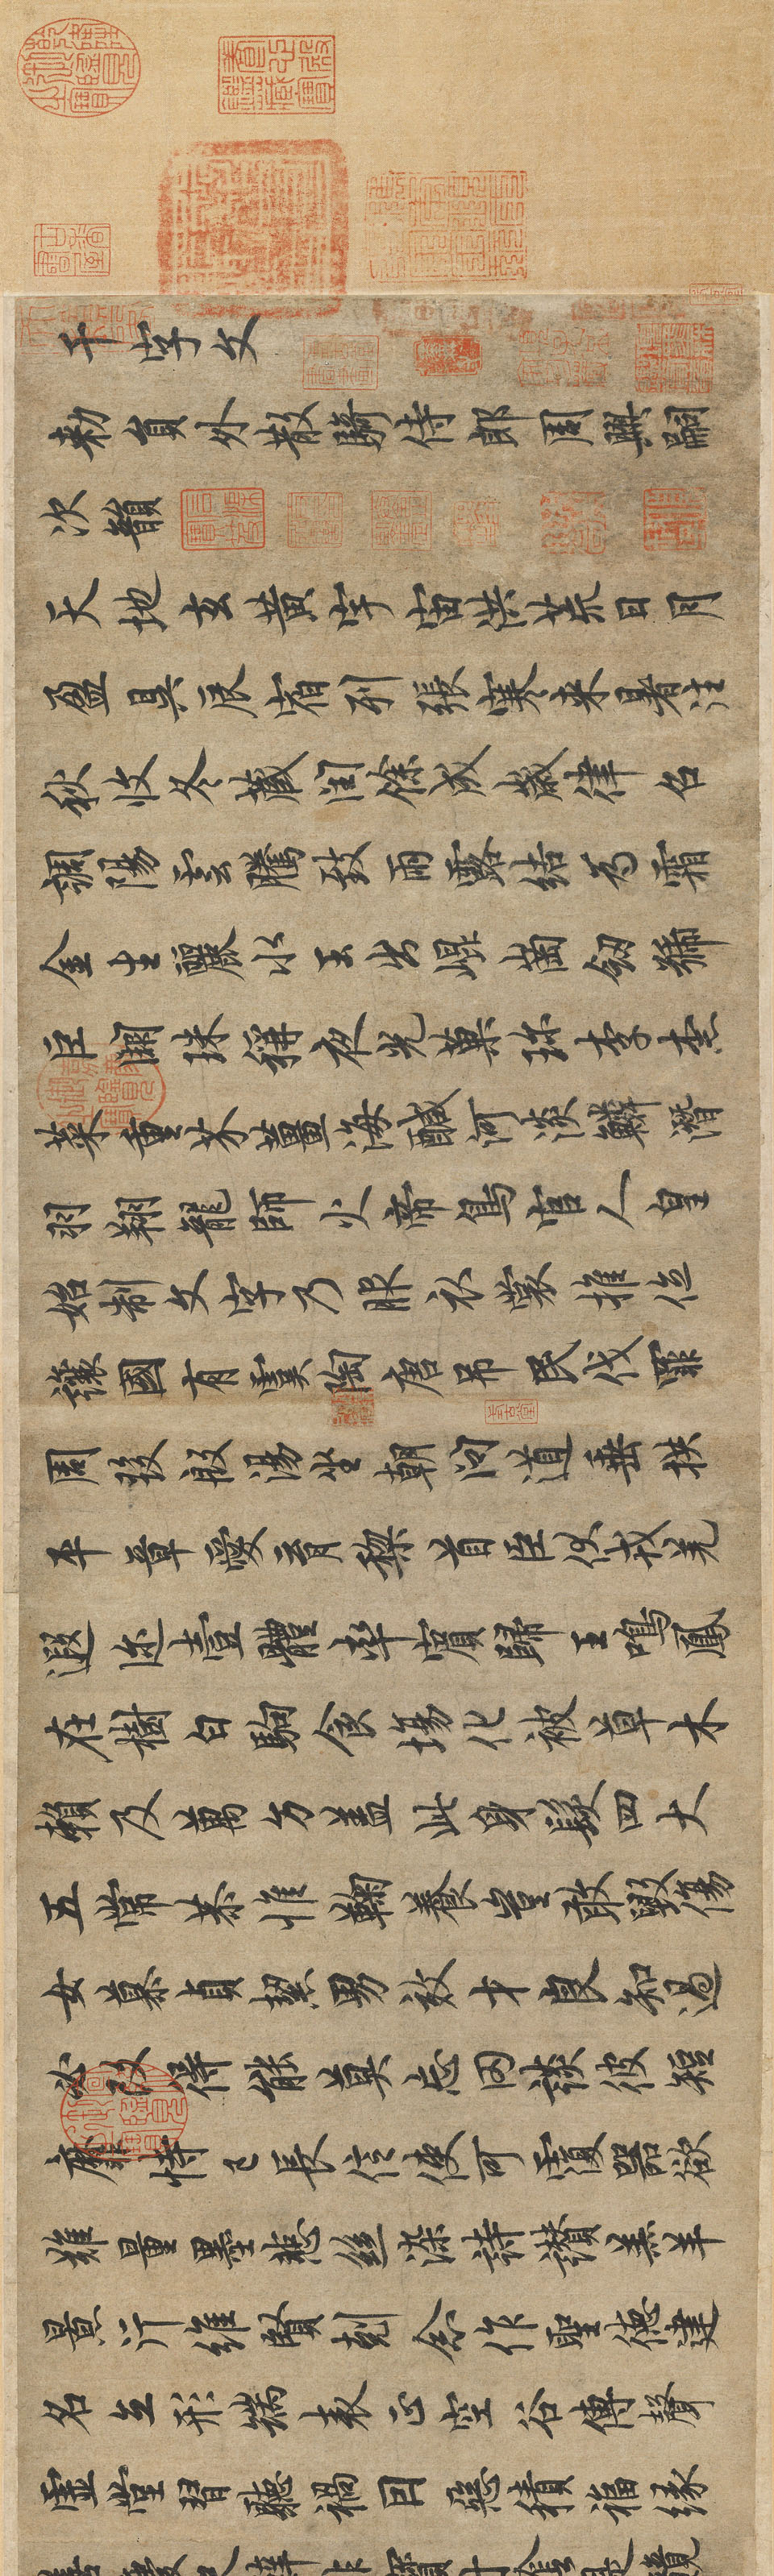 千字文
勅員外散騎侍郎周興嗣
次韻
天地玄黃宇宙洪荒日月
盈昃辰宿列張寒來暑往
秋收冬藏閏餘成歲律呂
調陽雲騰致雨露結為霜
金生麗水玉出崐崗劒號
巨闕珠稱夜光菓珎李柰
菜重芥薑海醎河淡鱗潛
羽翔龍師火帝鳥官人皇
始制文字乃服衣裳推位
讓國有虞陶唐吊民伐罪
周發殷湯坐朝問道垂拱
平章愛育黎首臣伏戎羌
遐迩壹體率賓歸王鳴鳳
在樹白駒食場化被草木
賴及萬方蓋此身髮四大
五常恭惟鞠養豈敢毀傷
女慕貞潔男效才良知過
必改得能莫忘罔談彼短
靡恃己長信使可覆器欲
難量墨悲絲染詩讚羔羊
景行維賢剋念作聖德建
名立形端表正空谷傳聲
虛堂習聽禍因惡積福緣